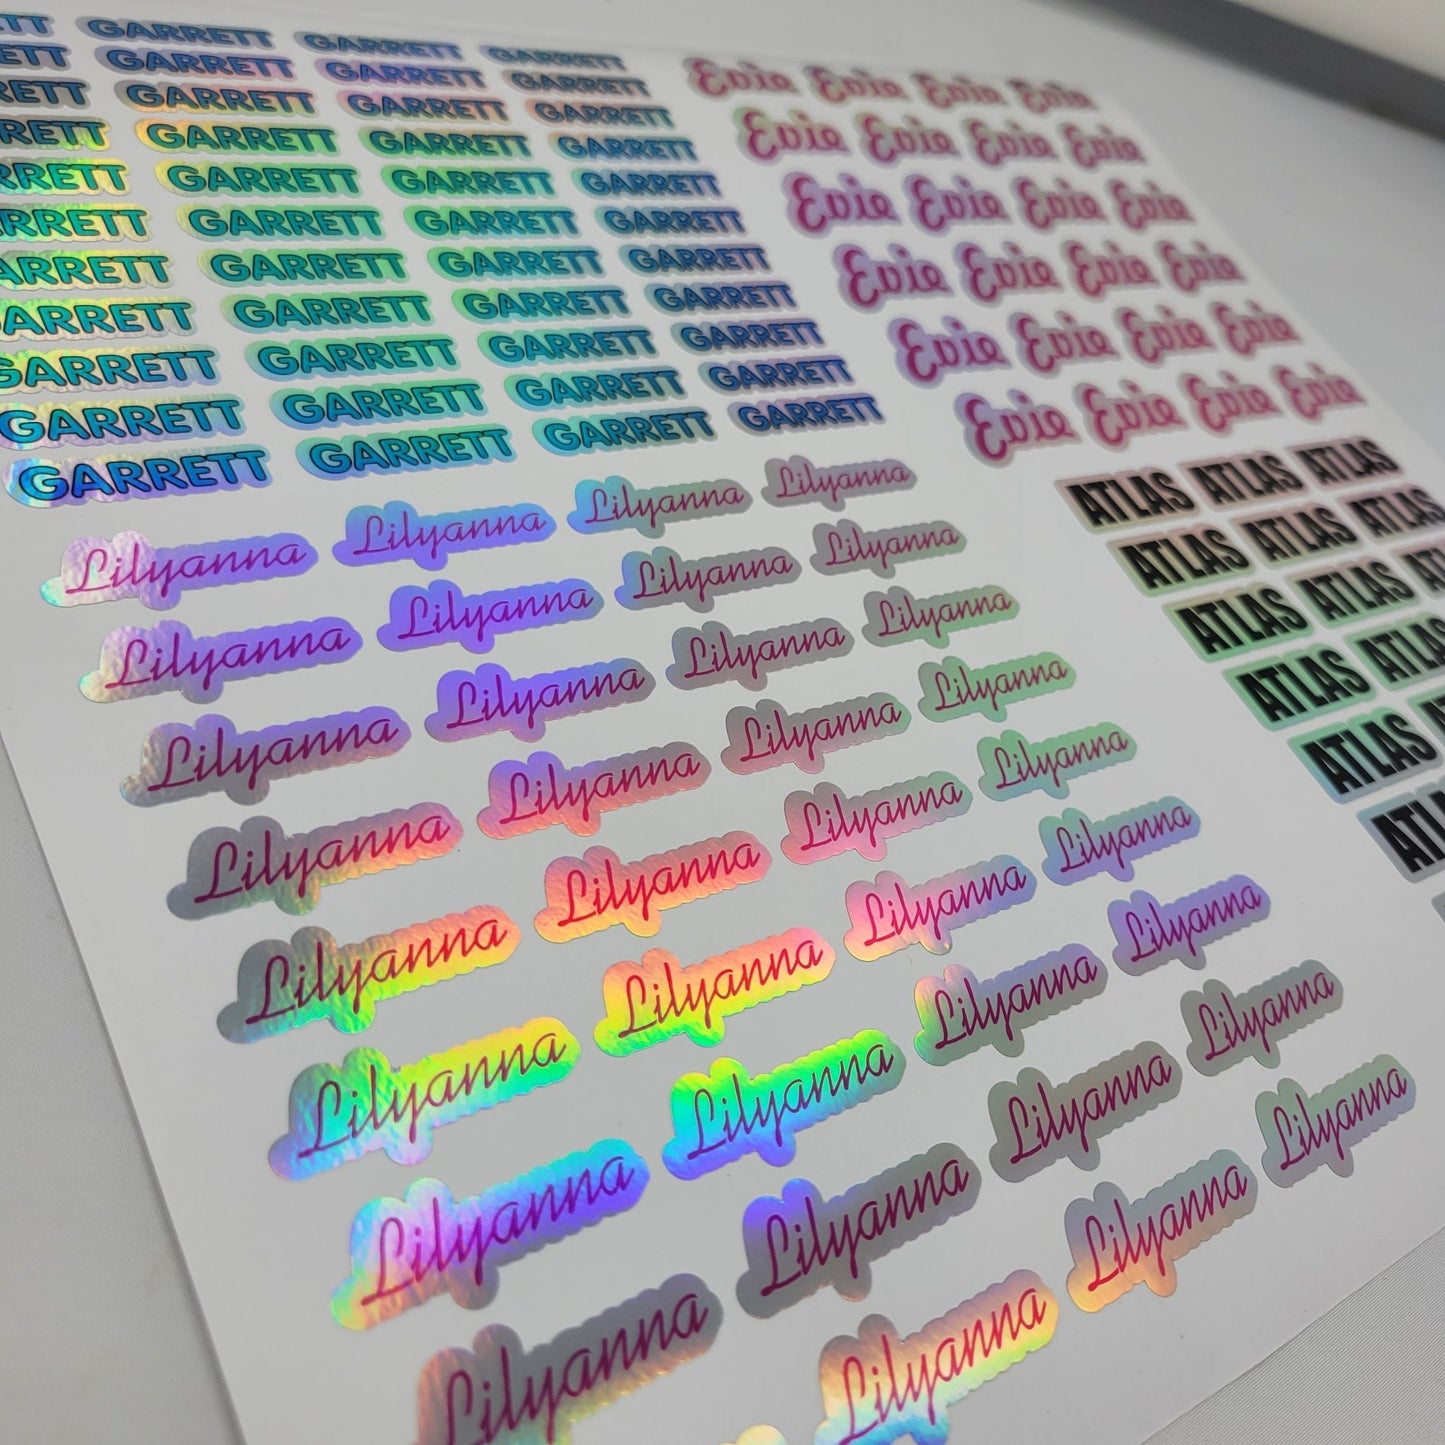 TT GARRETT GARRETT GARRETT
ETT GARRETT GARRETT GARRETT
RETT GARRETT GARRETT GARRETT
RRETT GARRETT GARRETT GARRETT
RRETT GARRETT GARRETT GARRETT
ARRETT GARRETT GARRETT GARRETT
ARRETT GARRETT GARRETT GARRETT
ARRETT GARRETT GARRETT GARRETT
GARRETT GARRETT GARRETT GARRETT
GARRETT GARRETT GARRETT GARRETT
GARRETT GARRETT GARRETT GARRETT
Evie Evie Evie Evie
Evie Evie Evie Evie
Evie Evie Evie Evie
Evie Evie Evie Evie
Evie Evie Evie Evie
Evie Evie Evie Evie
Lilyanna Lilyanna Lilyanna Lilyanna
Lilyanna Lilyanna Lilyanna Lilyanna
Lilyanna Lilyanna Lilyanna Lilyanna
Lilyanna Lilyanna Lilyanna Lilyanna
Lilyanna Lilyanna Lilyanna Lilyanna
Lilyanna Lilyanna Lilyanna Lilyanna
Lilyanna Lilyanna Lilyanna Lilyanna
Lilyanna Lilyanna Lilyanna Lilyanna
Lilyanna Lilyanna Lilyanna
ATLAS ATLAS ATLAS
ATLAS ATLAS ATLAS
ATLAS ATLAS
ATLAS ATLAS
ATLAS
ATL